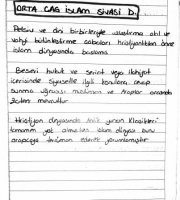 ORTA ÇAĞ İSLAM SİYASİ D.
ve dini birbirleriyle uzlaştırma akıl ve
vahyi bütünleştirme çabaları hristiyanlıktan önce
islam dünyasında başlamış
Beşeri hukuk ve şeriat veya ilahiyat
içerisinde siyasetle ilgili konulara cevap
sunma uğraşısı müslüman ve Araplar arasında
zaten mevcuttur
Hristiyan dünyasında antik yunan klasikleri
tamamen yok islam dünyası bunu
arapçaya tercüme ederek yorumlamıştır